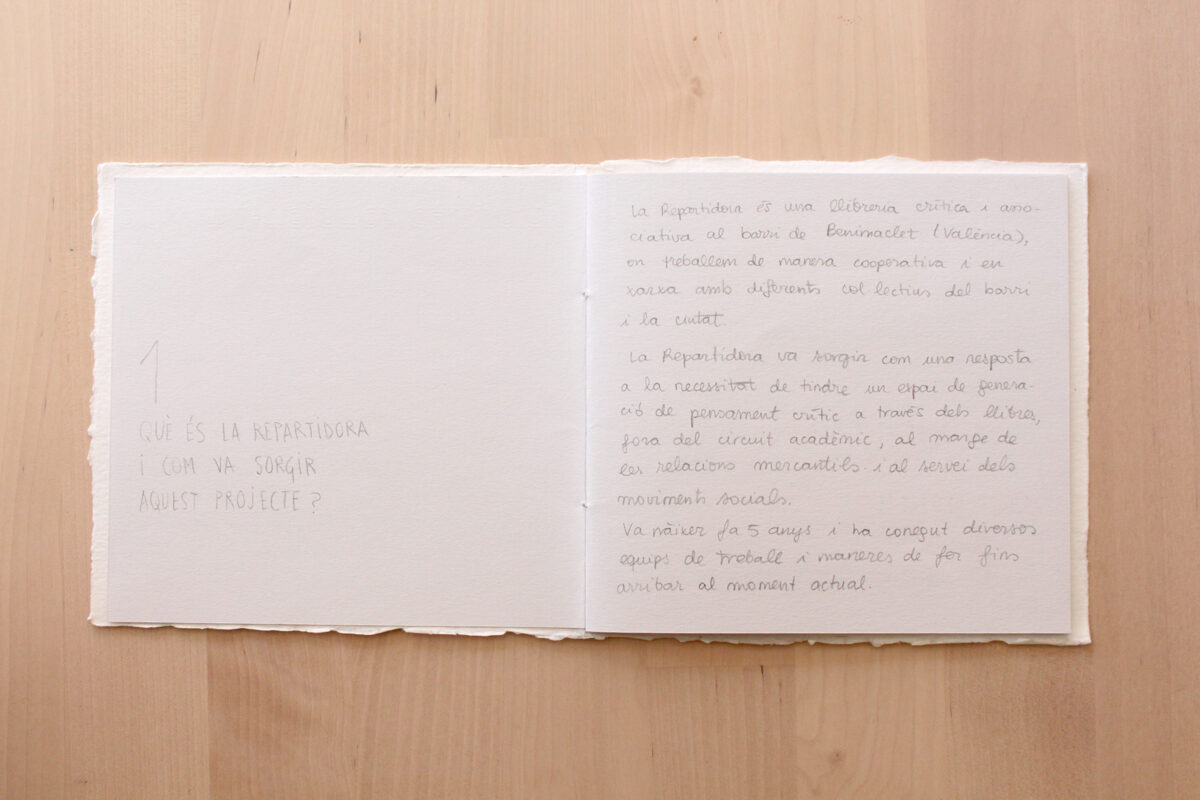 1
QUÈ ÉS LA REPARTIDORA
I COM VA SORGIR
AQUEST PROJECTE?
La Repartidora és una llibreria crítica i asso-
ciativa al barri de Benimaclet (València),
on treballem de manera cooperativa i en
xarxa amb diferents col·lectius del barri
i la ciutat.
La Repartidora va sorgir com una resposta
a la necessitat de tindre un espai de genera-
ció de pensament crític a través dels llibres,
fora del circuit acadèmic, al marge de
les relacions mercantils i al servei dels
moviments socials.
Va nàixer fa 5 anys i ha conegut diversos
equips de treball i maneres de fer fins
arribar al moment actual.